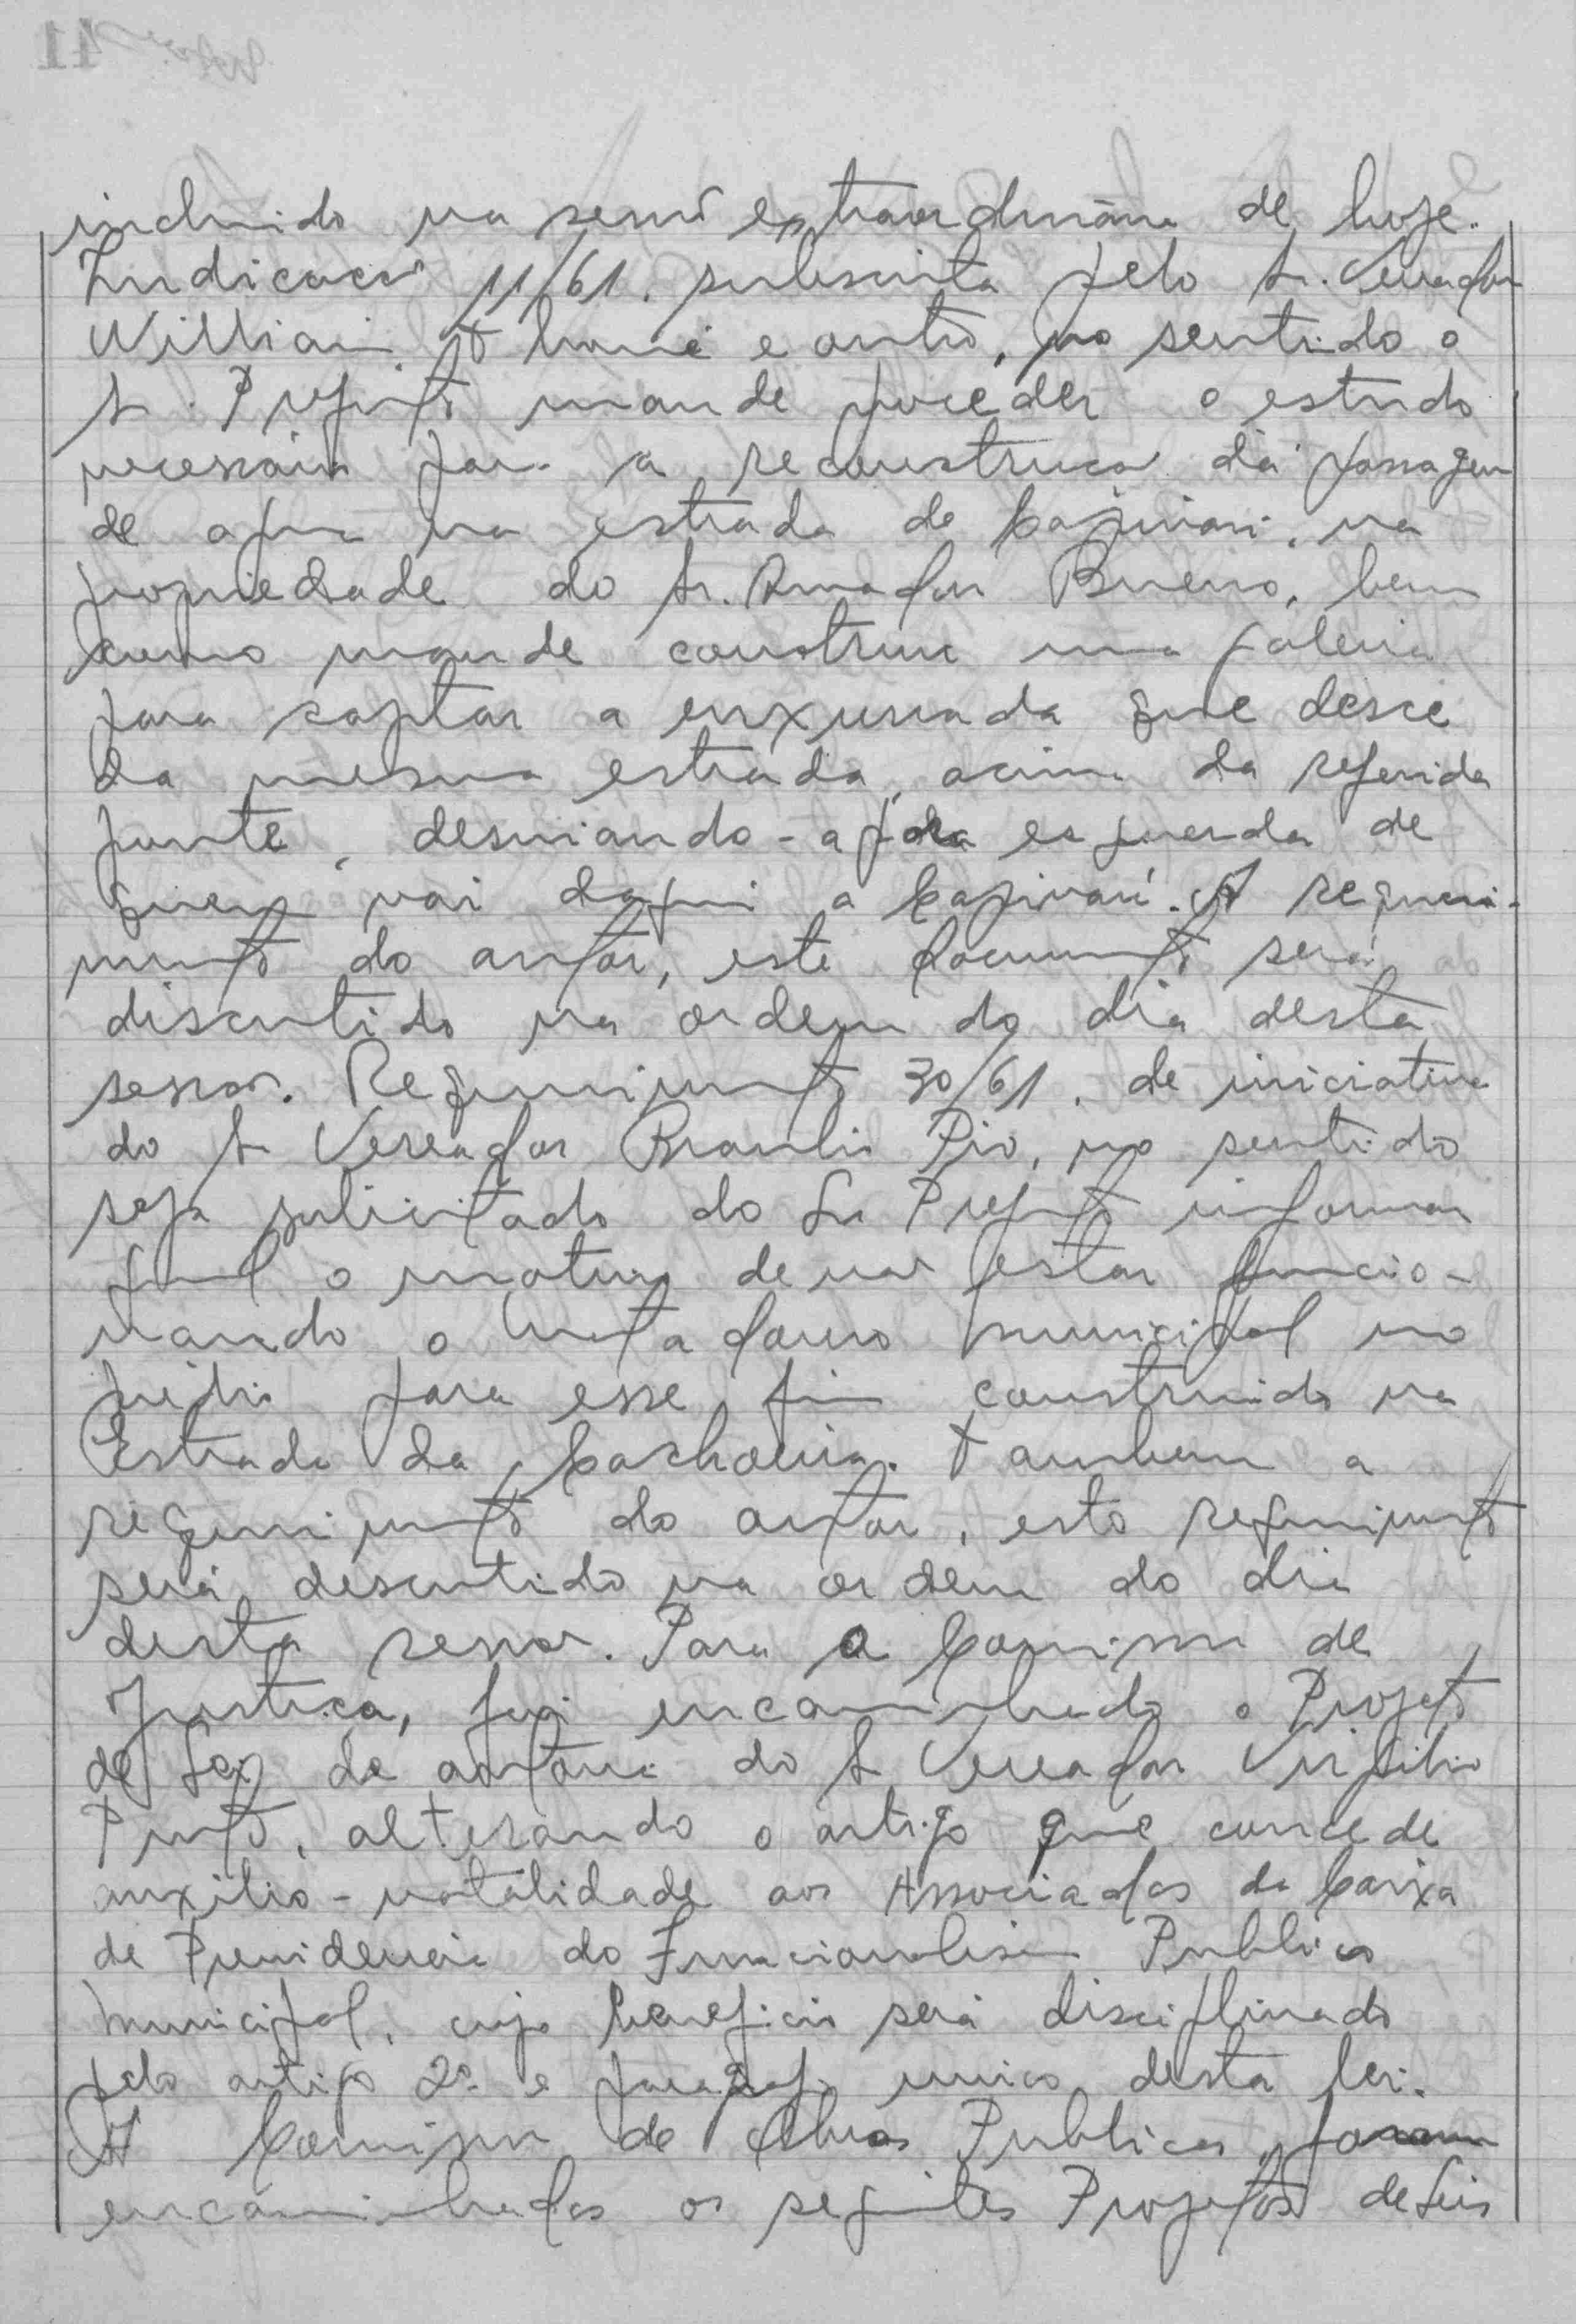 incluido na sessão extraordinária de hoje.
Indicação 11/61, subscrita pelo Sr. Vereador
William Thomé e outro, no sentido o
Sr. Prefeito mande proceder o estudo
necessário para a reconstrução da passagem
de agua na estrada de Capivari, na
propriedade do Sr. Amador Bueno, bem
como mande construir uma galeria
para captar a enxurrada que desce
da mesma estrada, acima da referida
ponte, desviando-a pela esquerda de
quem vai daqui a Capivari. A requeri-
mento do autor, este documento será
discutido na ordem do dia desta
sessão. Requerimento 30/61, de iniciativa
do Sr Vereador Braulio Pio, no sentido
seja solicitado do Sr Prefeito informar
qual o motivo de não estar funcio-
nando o matadouro municipal no
prédio para esse fim construido na
Estrada da Cachoeira. Tambem a
requerimento do autor, esto requerimento
será descutido na ordem do dia
desta sessão. Para a Comissão de
Justiça, foi encaminhado o Projeto
de Lei de autoria do Sr Vereador Virgilio
Pinto, alterando o artigo que concede
auxilio-natalidade aos Associados da Caixa
de Previdencia do Funcionalismo Publico
Municipal, cujo beneficio será disciplinado
pelo artigo 2º e paragrafo unico desta lei.
A Comissão de Obras Publicas, foram
encaminhados os seguintes Projetos de Leis